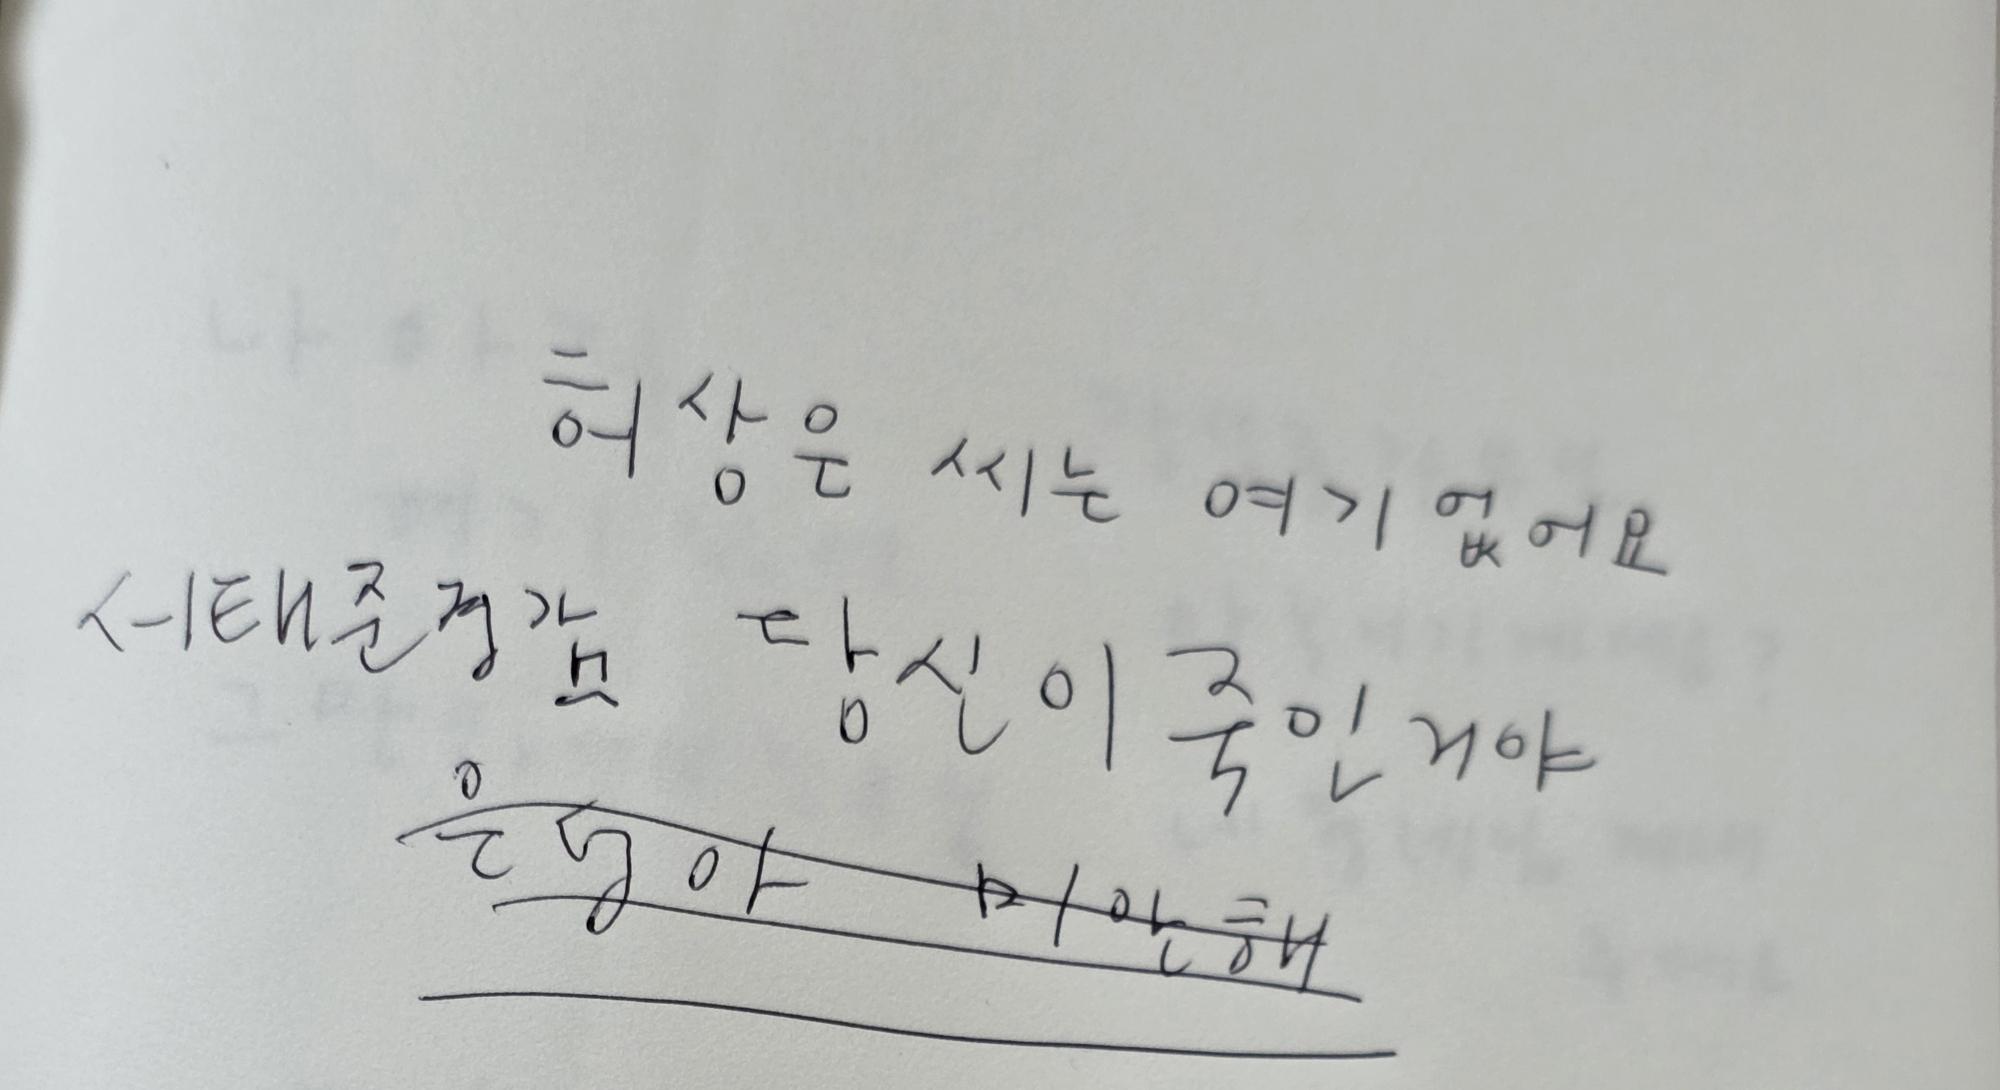 허상은 씨는 여기 없어요
서태준 경감 당신이 죽인거야
은숭아 미안해